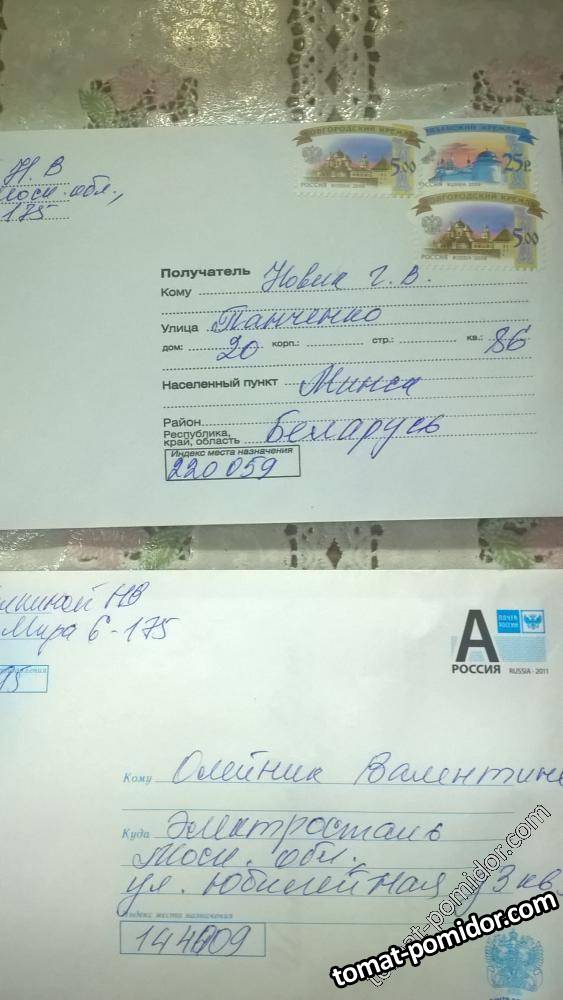 Н. В
Моск. обл.,
175
НОВГОРОДСКИЙ КРЕМЛЬ
5.00
РОССИЯ RUSSIA 2009
КАЗАНСКИЙ КРЕМЛЬ
25р
РОССИЯ RUSSIA 2009
НОВГОРОДСКИЙ КРЕМЛЬ
5.00
РОССИЯ RUSSIA 2009
Получатель
Кому Новик Г. В.
Улица Панченко
дом: 20 корп.: стр.: кв.: 86
Населенный пункт Минск
Район
Республика,
край, область Беларусь
Индекс места назначения
220059
НВ
Мира 6-175
95
ПОЧТА РОССИИ
А
РОССИЯ RUSSIA · 2011
Кому Олейник Валентине
Куда Электросталь
Моск. обл.
ул. Юбилейная
Индекс места назначения
144009
tomat-pomidor.com
tomat-pomidor.com